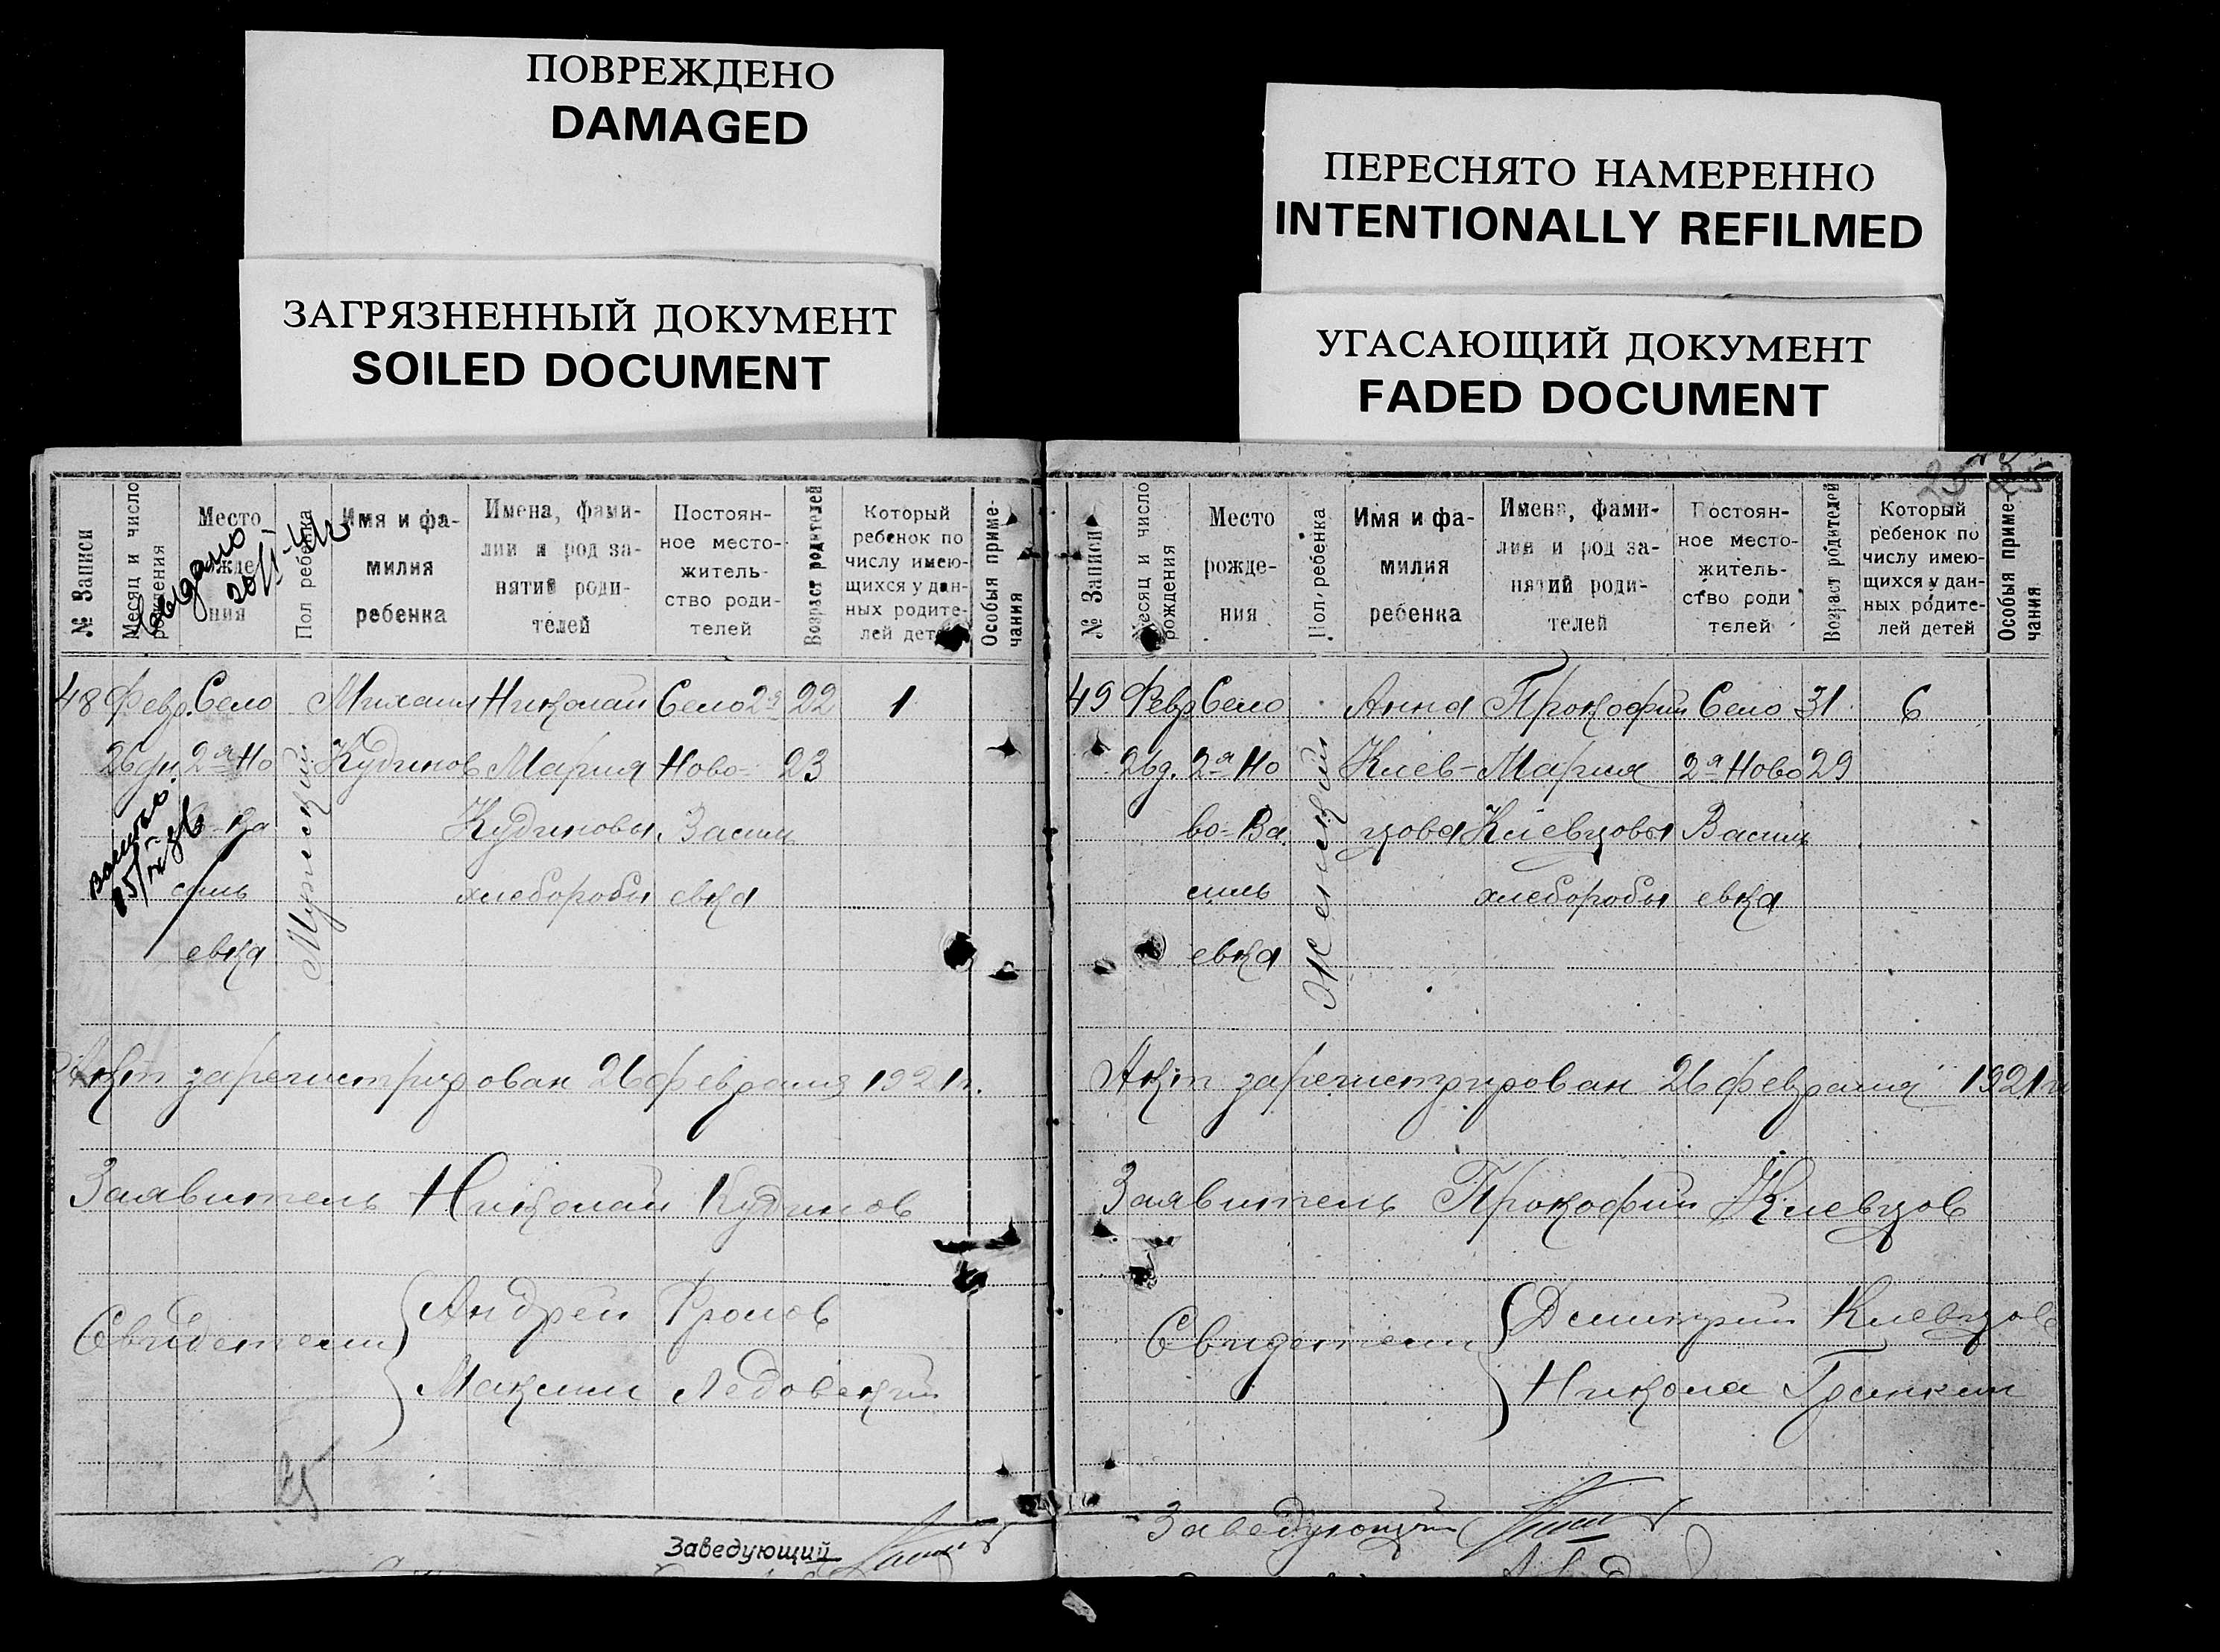 ПОВРЕЖДЕНО
DAMAGED
ЗАГРЯЗНЕННЫЙ ДОКУМЕНТ
SOILED DOCUMENT
ПЕРЕСНЯТО НАМЕРЕННО
INTENTIONALLY REFILMED
УГАСАЮЩИЙ ДОКУМЕНТ
FADED DOCUMENT
№ Записи
Месяц и число
рождения
Место
рожде-
ния
Пол ребенка
Имя и фа-
милия
ребенка
Имена, фами-
лии и род за-
нятий роди-
телей
Постоян-
ное место-
житель-
ство роди-
телей
Возраст родителей
Который
ребенок по
числу имею-
щихся у дан-
ных родите-
лей детей
Особыя приме-
чания
выдано
48 Февр. Село Михаил Николай Село 2я 22 1
26 дн. 2-я Но Кудинов Мария Ново- 23
ка Кудиновы Васил
силь хлеборобы евка
евка
Мужский
Акт зарегистрирован 26 февраля 1921 г.
Заявитель Николай Кудинов
Свидетели Андрей Фролов
Максим Ледовский
25
Заведующий
25 25
№ Записи
Месяц и число
рождения
Место
рожде-
ния
Пол ребенка
Имя и фа-
милия
ребенка
Имена, фами-
лии и род за-
нятий роди-
телей
Постоян-
ное место-
житель-
ство роди
телей
Возраст родителей
Который
ребенок по
числу имею-
щихся у дан-
ных родите-
лей детей
Особыя приме-
чания
49 Февр Село Анна Прокофий Село 31 6
26 д. 2-я Но Киев- Мария 2-я Ново 29
во-Ва цова Киевцовы Василь
силь хлеборобы евка
евка
Женский
Акт зарегистрирован 26 февраля 1921 г
Заявитель Прокофий Киевцов
Свидетели Димитрий Киевцов
Никола Гринкин
Заведующий